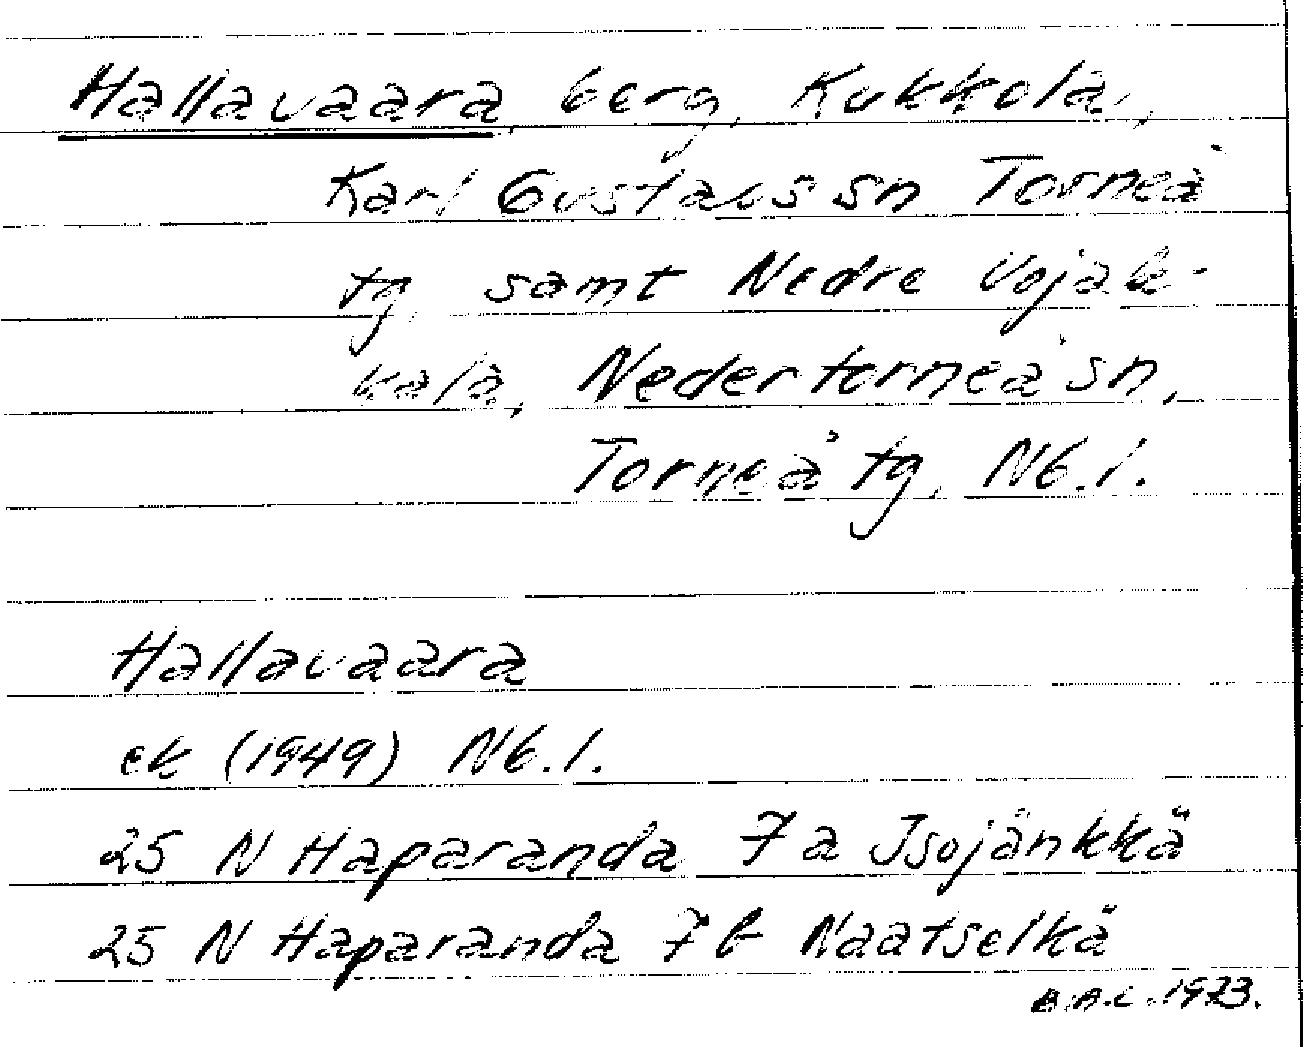 Hallavaara, berg, Kukkola,
Karl Gustavs sn Torneå
tg, samt Nedre Vojak-
kala, Nedertorneå sn,
Torneå tg, Nb.l.
Hallavaara
ek (1949) Nb.l.
25 N Haparanda 7a Isojänkkä
25 N Haparanda 7b Naatselkä
B.A.L. 1973.